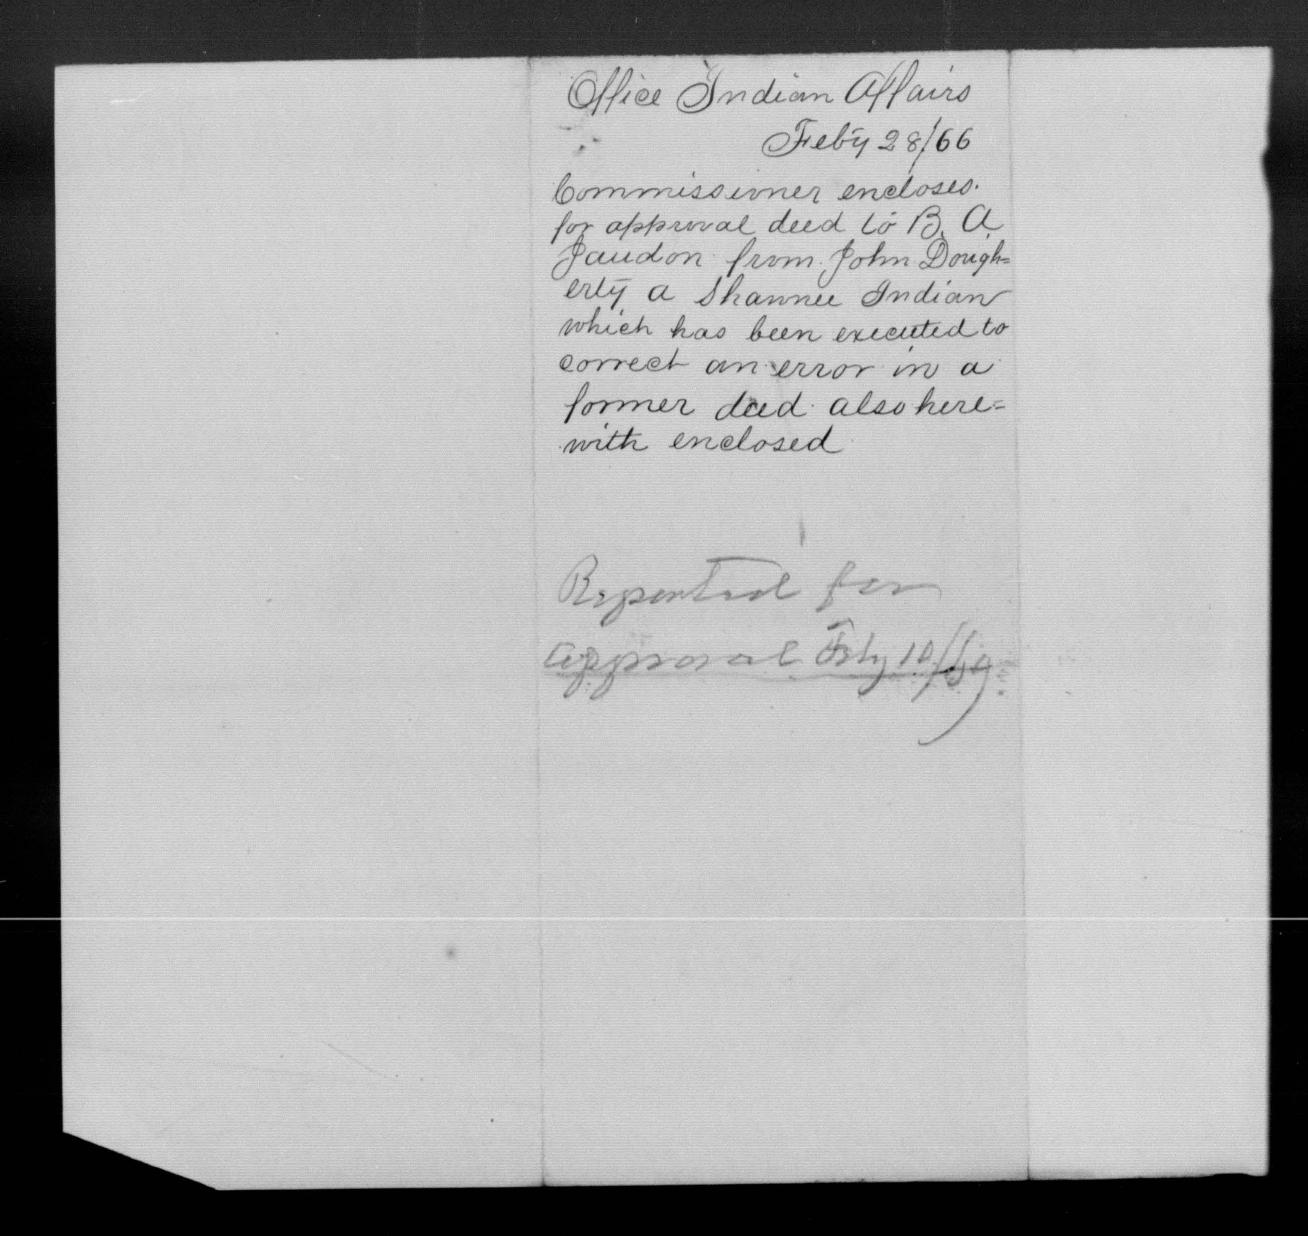 Office Indian Affairs
Feby 28/66
Commissioner encloses
for approval deed to B. A.
Jaudon from John Dough=
erty a Shawnee Indian
which has been executed to
correct an error in a
former deed also here=
with enclosed
Reported for
approval Feby 10/69